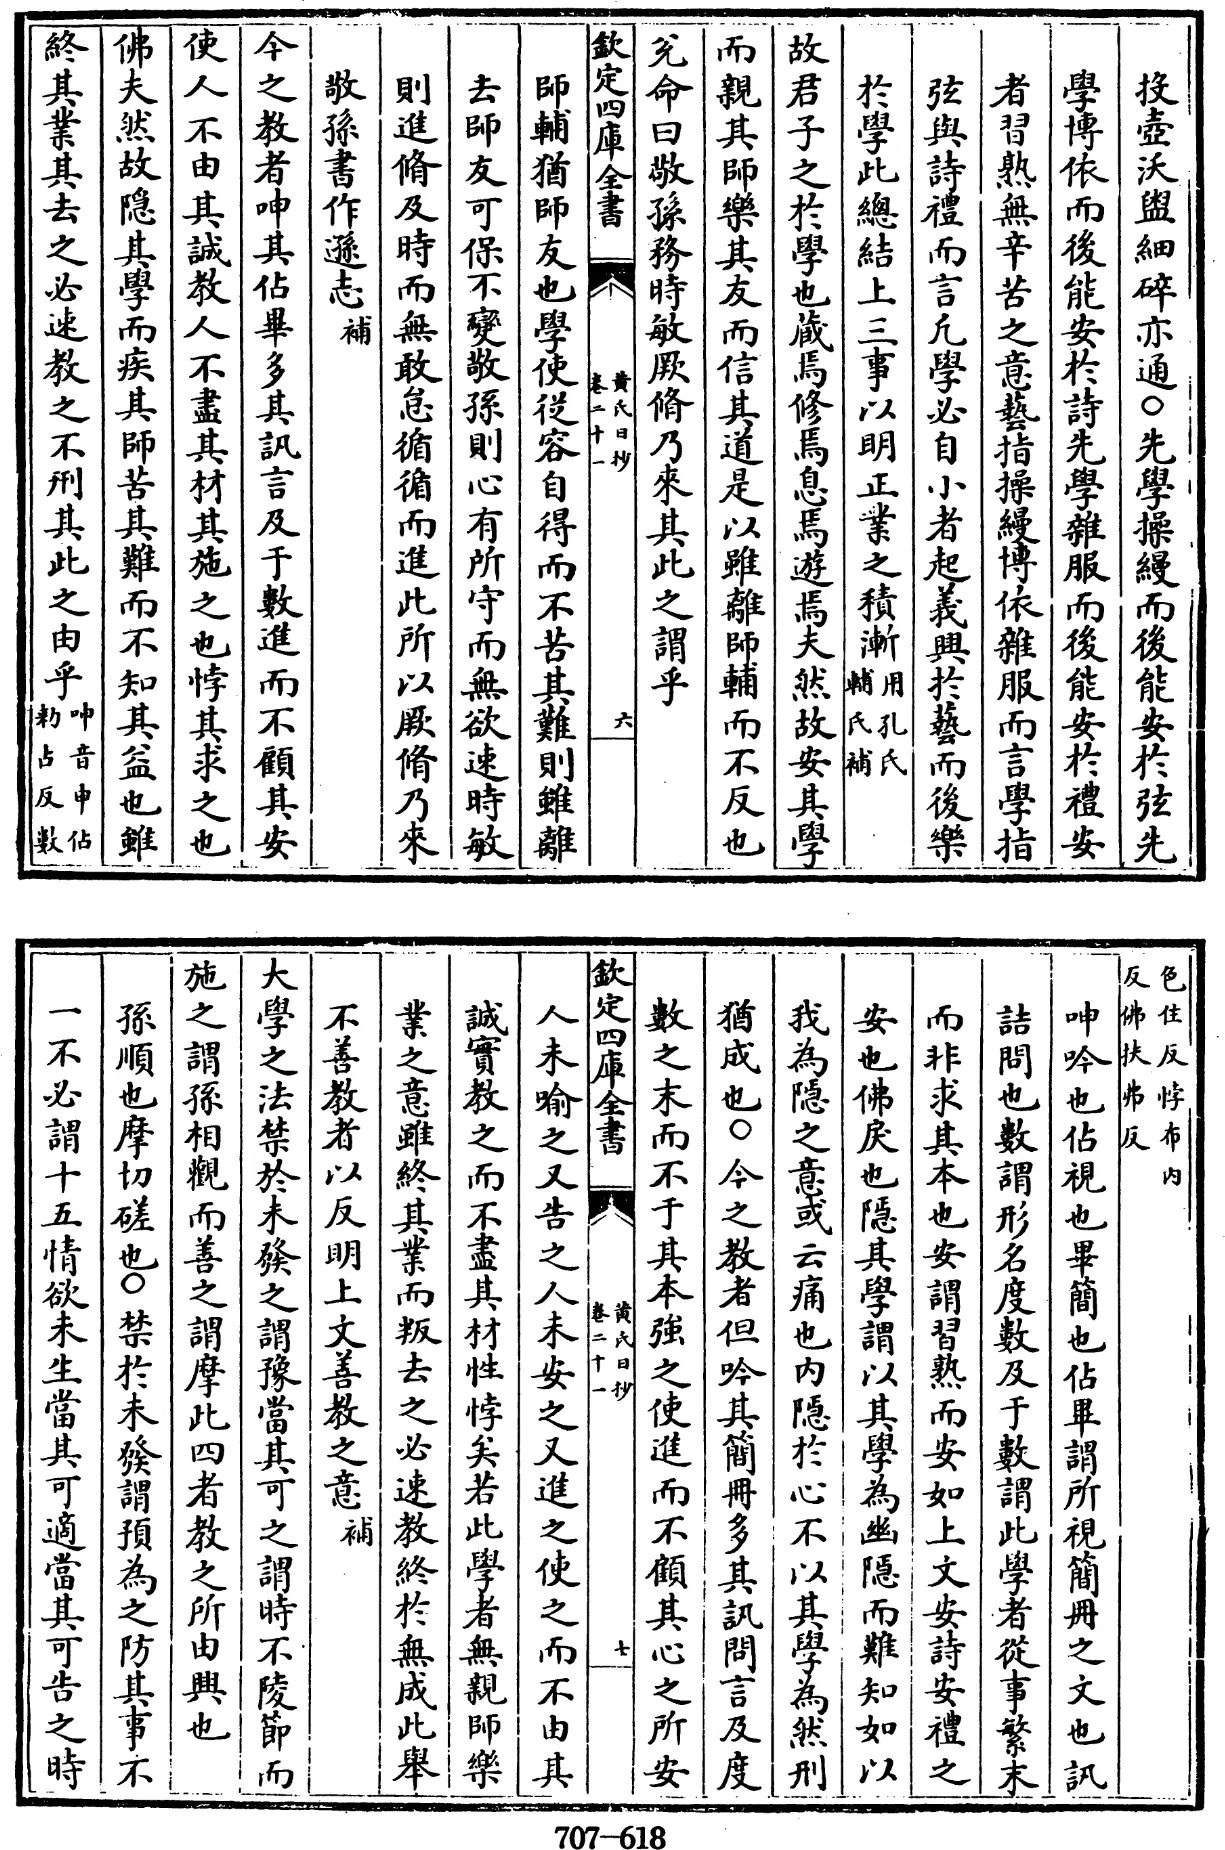 投壺沃盥細碎亦通○先學操縵而後能安於弦先
學博依而後能安於詩先學雜服而後能安於禮安
者習熟無辛苦之意藝指操縵博依雜服而言學指
弦與詩禮而言凡學必自小者起義興於藝而後樂
於學此總結上三事以明正業之積漸用孔氏輔氏補
故君子之於學也藏焉修焉息焉遊焉夫然故安其學
而親其師樂其友而信其道是以雖離師輔而不反也
兊命曰敬孫務時敏厥脩乃來其此之謂乎
欽定四庫全書 黄氏日抄 卷二十一 六
師輔猶師友也學使從容自得而不苦其難則雖離
去師友可保不變敬孫則心有所守而無欲速時敏
則進脩及時而無敢怠循循而進此所以厥脩乃來
敬孫書作遜志補
今之教者呻其佔畢多其訊言及于數進而不顧其安
使人不由其誠教人不盡其材其施之也悖其求之也
佛夫然故隠其學而疾其師苦其難而不知其益也雖
終其業其去之必速教之不刑其此之由乎呻音申佔勑占反數
色住反悖布内反佛扶弗反
呻吟也佔視也畢簡也佔畢謂所視簡冊之文也訊
詰問也數謂形名度數及于數謂此學者從事繁末
而非求其本也安謂習熟而安如上文安詩安禮之
安也佛戾也隠其學謂以其學為幽隠而難知如以
我為隠之意或云痛也内隠於心不以其學為然刑
猶成也○今之教者但吟其簡冊多其訊問言及度
數之末而不于其本強之使進而不顧其心之所安
欽定四庫全書 黄氏日抄 卷二十一 七
人未喻之又告之人未安之又進之使之而不由其
誠實教之而不盡其材性悖矣若此學者無親師樂
業之意雖終其業而叛去之必速教終於無成此舉
不善教者以反明上文善教之意補
大學之法禁於未發之謂豫當其可之謂時不陵節而
施之謂孫相觀而善之謂摩此四者教之所由興也
孫順也摩切磋也○禁於未發謂預為之防其事不
一不必謂十五情欲未生當其可適當其可告之時
707—618